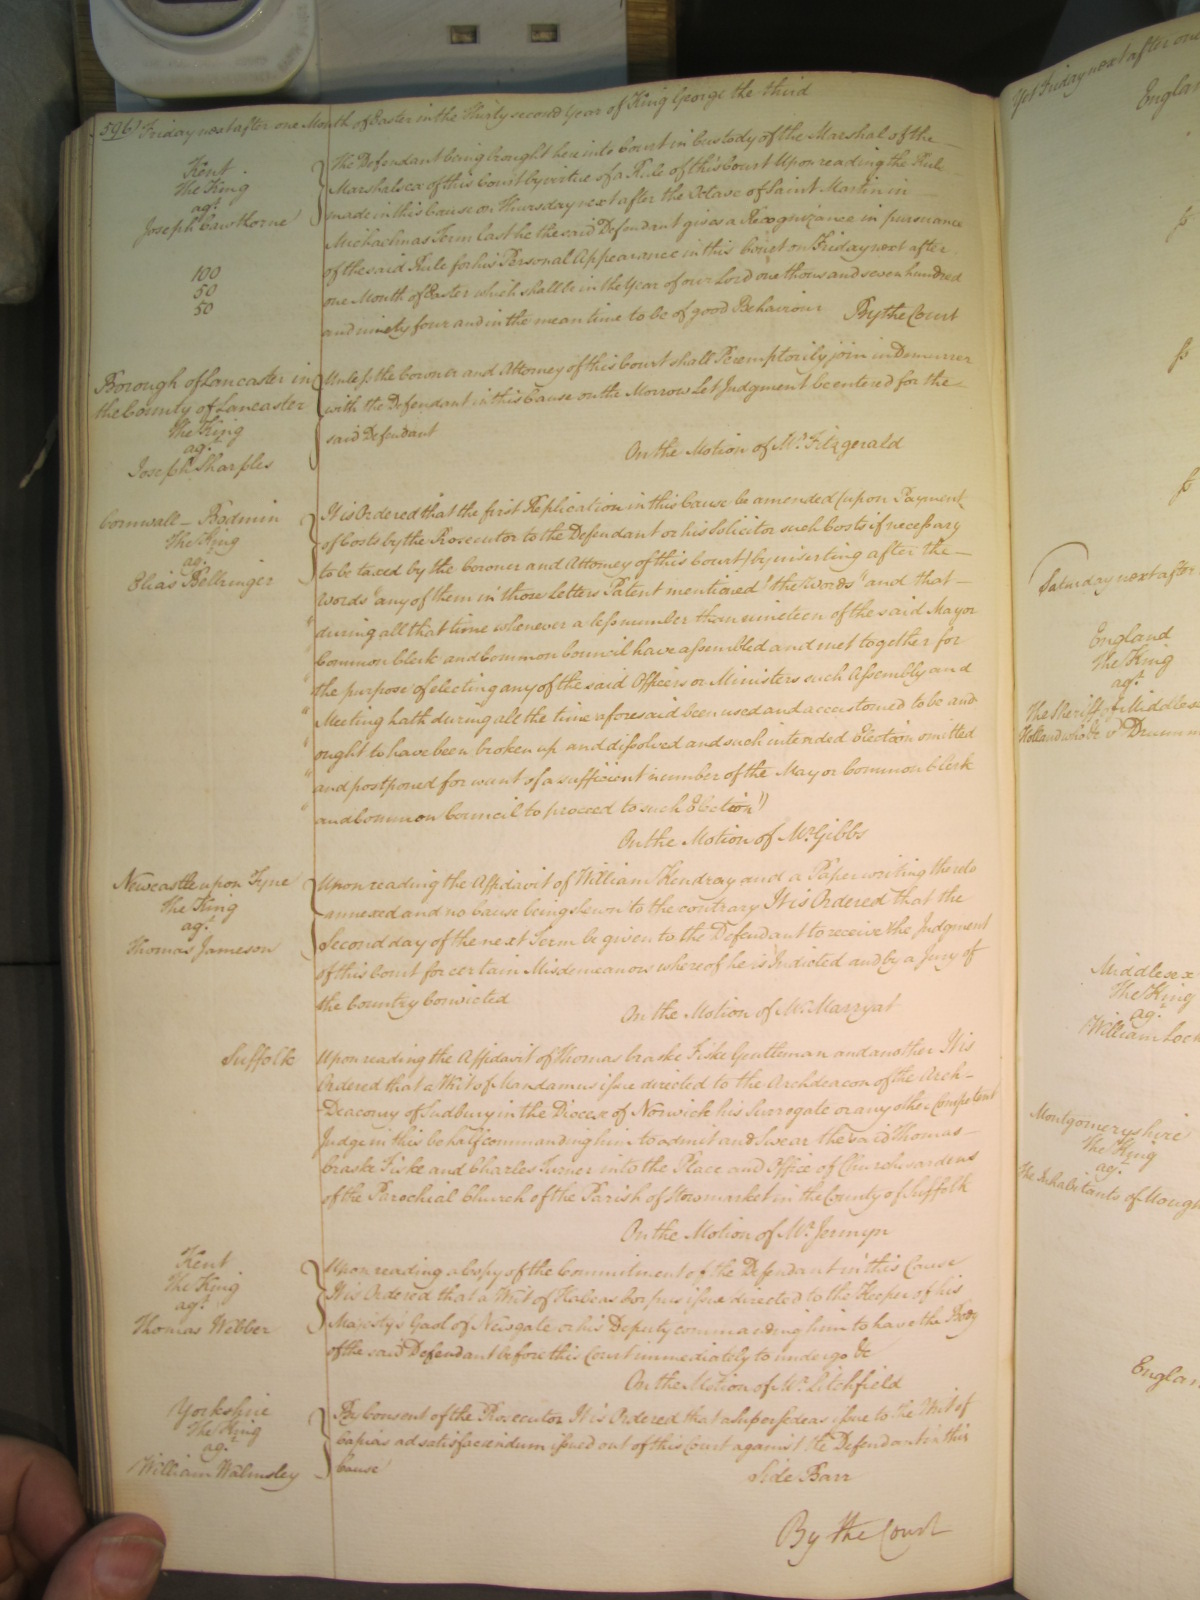 596) Friday next after one Month of Easter in the Thirty second Year of King George the third
Kent
The King
agt.
Joseph Cawthorne
100
50
50
The Defendant being brought here into Court in Custody of the Marshal of the
Marshalsea of this Court by virtue of a Rule of this Court Upon reading the Rule
made in this Cause on Thursday next after the Octave of Saint Martin in
Michaelmas Term last he the said Defendant gives a Recognizance in pursuance
of the said Rule for his Personal Appearance in this Court on Friday next after
one Month of Easter which shall be in the Year of our Lord one thousand seven hundred
and ninety four and in the mean time to be of good Behaviour By the Court
Borough of Lancaster in
the County of Lancaster
The King
agt.
Joseph Sharples
Unless the Coroner and Attorney of this Court shall Peremptorily join in Demurrer
with the Defendant in this Cause on the Morrow Let Judgment be entered for the
said Defendant
On the Motion of Mr. Fitzgerald
Cornwall – Bodmin
The King
agt.
Elias Belringer
It is Ordered that the first Replication in this Cause be amended (upon Payment
of Costs by the Prosecutor to the Defendant or his Solicitor such Costs if necessary
to be taxed by the Coroner and Attorney of this Court) by inserting after the
words "any of them in those Letters Patent mentioned" the words "and that
" during all that time whenever a less number than nineteen of the said Mayor
Common Clerk and Common Council have assembled and met together for
" the purpose of electing any of the said Officers or Ministers such Assembly and
" Meeting hath during all the time aforesaid been used and accustomed to be and
" ought to have been broken up and dissolved and such intended Election omitted
" and postponed for want of a sufficient number of the Mayor Common Clerk
" and Common Council to proceed to such Election")
On the Motion of Mr. Gibbs
Newcastle upon Tyne
The King
agt.
Thomas Jameson
Upon reading the Affidavit of William Kendray and a Paper writing thereto
annexed and no Cause being shewn to the contrary It is Ordered that the
Second day of the next Term be given to the Defendant to receive the Judgment
of this Court for certain Misdemeanors whereof he is Indicted and by a Jury of
the Country Convicted
On the Motion of Mr. Marryat
Suffolk
Upon reading the Affidavit of Thomas Craske Fiske Gentleman and another It is
Ordered that a Writ of Mandamus issue directed to the Archdeacon of the Arch–
–Deaconry of Sudbury in the Diocese of Norwich his Surrogate or any other Competent
Judge in this behalf commanding him to admit and Swear the said Thomas
Craske Fiske and Charles Turner into the Place and Office of Churchwardens
of the Parochial Church of the Parish of Stowmarket in the County of Suffolk
On the Motion of Mr. Jermyn
Kent
The King
agt.
Thomas Webber
Upon reading a Copy of the Commitment of the Defendant in this Cause
It is Ordered that a Writ of Habeas Corpus issue directed to the Keeper of his
Majesty's Gaol of Newgate or his Deputy commanding him to have the Body
of the said Defendant before this Court immediately to undergo &c
On the Motion of Mr. Litchfield
Yorkshire
The King
agt.
William Walmsley
By Consent of the Prosecutor It is Ordered that a Supersedeas issue to the Writ of
Capias ad satisfaciendum issued out of this Court against the Defendant in this
Cause
Side Barr
By the Court
yet Friday next after one
Englan
Saturday next after
England
The King
agt.
The Sheriff of Middlesex
Middlesex
The King
agt.
William Lock
Montgomeryshire
The King
agt.
The Inhabitants of
Englan